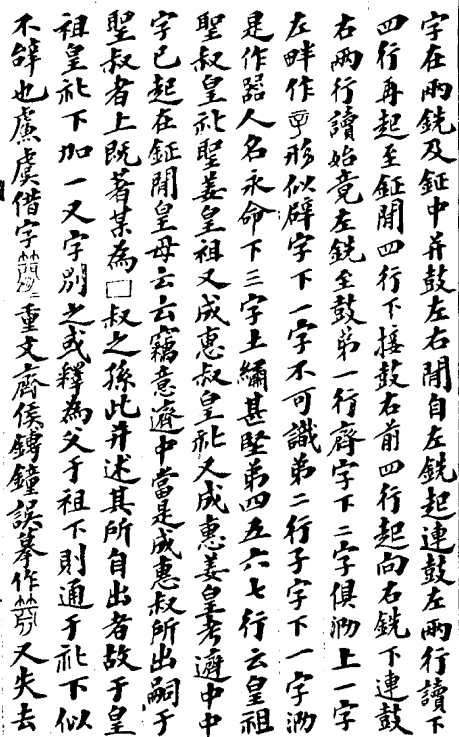 字在兩銑及鉦中并鼓左右閒自左銑起連鼓左兩行讀下
四行再起至鉦閒四行下接鼓右前四行起向右銑下連鼓
右兩行讀始竟左銑至鼓弟一行齊字下二字俱泐上一字
左畔作形似辟字下一字不可識弟二行子字下一字泐
是作器人名永命下三字土繡甚堅弟四五六七行云皇祖
聖叔皇礼聖姜皇祖又成惠叔皇礼又成惠姜皇考遵中中
字已起在鉦閒皇母云云竊意遵中當是成惠叔所出嗣于
聖叔者上既著某為□叔之孫此并述其所自出者故于皇
祖皇礼下加一又字別之或釋為父于祖下則通于礼下似
不辭也慮虞借字重文齊侯鎛鐘誤摹作又失去